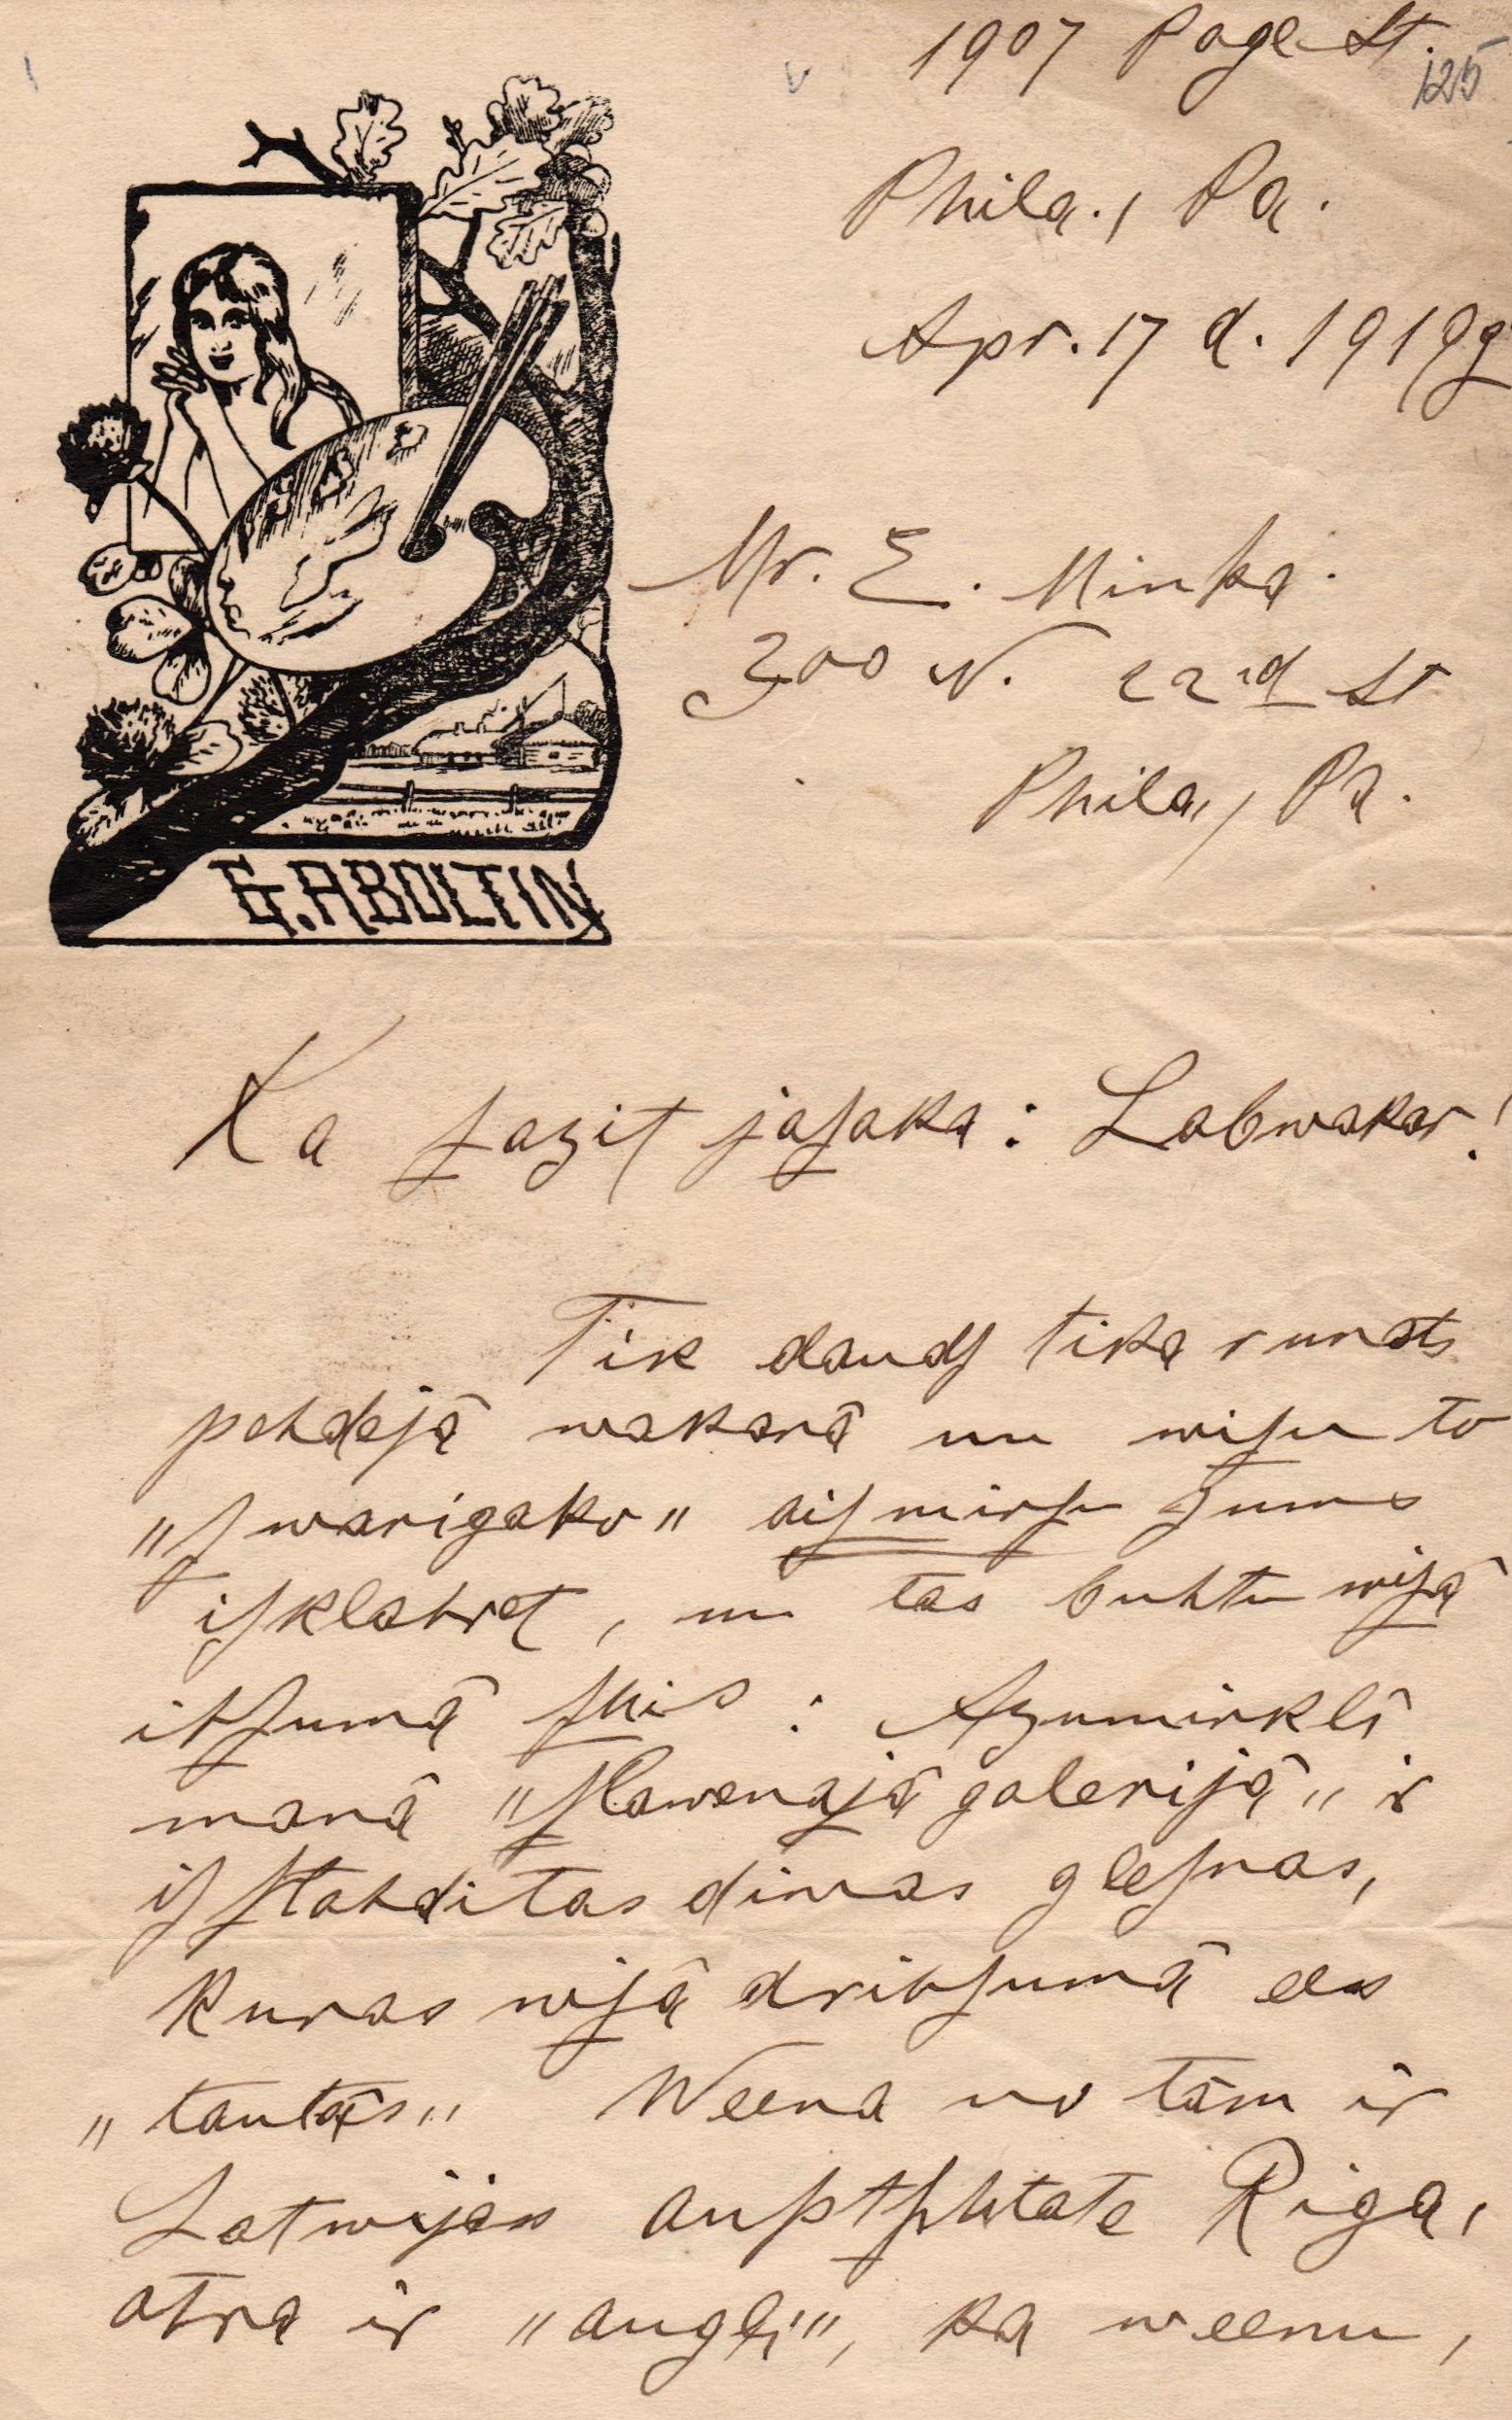 1907 Page St.
125
Phila., Pa.
Apr. 17 d. 1919 g
Mr. E. Minka.
300 N. 22nd St
Phila, Pa.
G. ABOLTIN
Ka ſazit jaſaka: Labwakar!
Tik daudſ tika runats
pehdejâ wakarâ un wiſu to
„ſwarigako” aiſmirſu Jums
iſklahret, un tas buhtu wiſâ
ihſumâ ſhis: Azumirklî
manâ „ſlawenajâ galerijâ” ir
iſſtahditas diwas gleſnas,
kuras wiſâ drihſumâ ees
„tautâs” Weena no tâm ir
Latwijas aupſtſihtate Riga,
otra ir „augļi”, ka weenu,